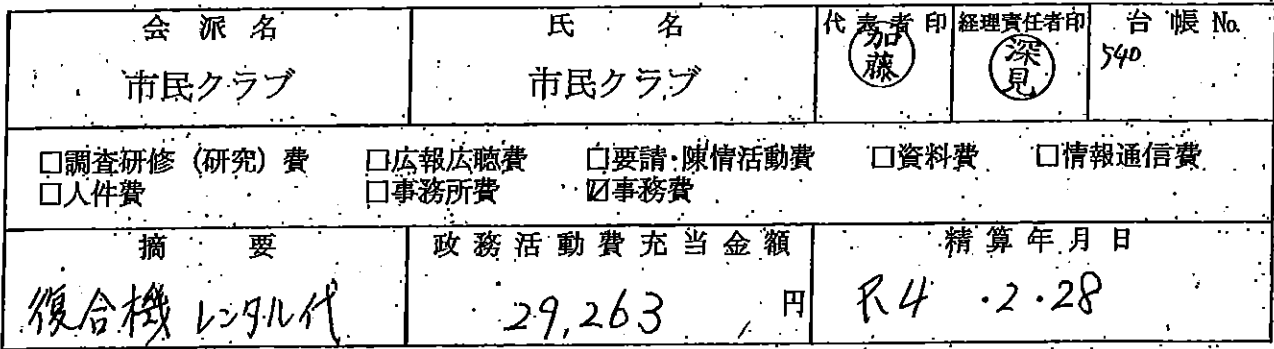 会派名 氏名 代表者印 経理責任者印 台帳No.
市民クラブ 市民クラブ 加藤 深見 540
□調査研修(研究)費 □広報広聴費 □要請・陳情活動費 □資料費 □情報通信費
□人件費 □事務所費 ☑事務費
摘要 政務活動費充当金額 精算年月日
復合機レンタル代 29,263円 R4・2・28